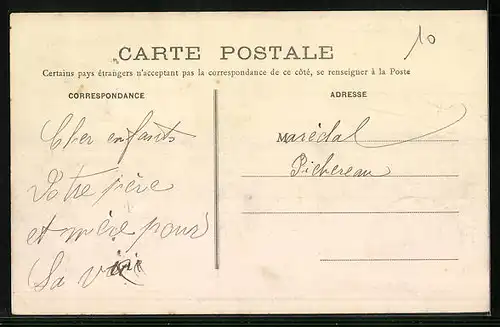 10
CARTE POSTALE
Certains pays étrangers n'acceptant pas la correspondance de ce côté, se renseigner à la Poste
CORRESPONDANCE
ADRESSE
Cher enfants
Votre père
et mère pour
la vie
Maréchal
Pichereau